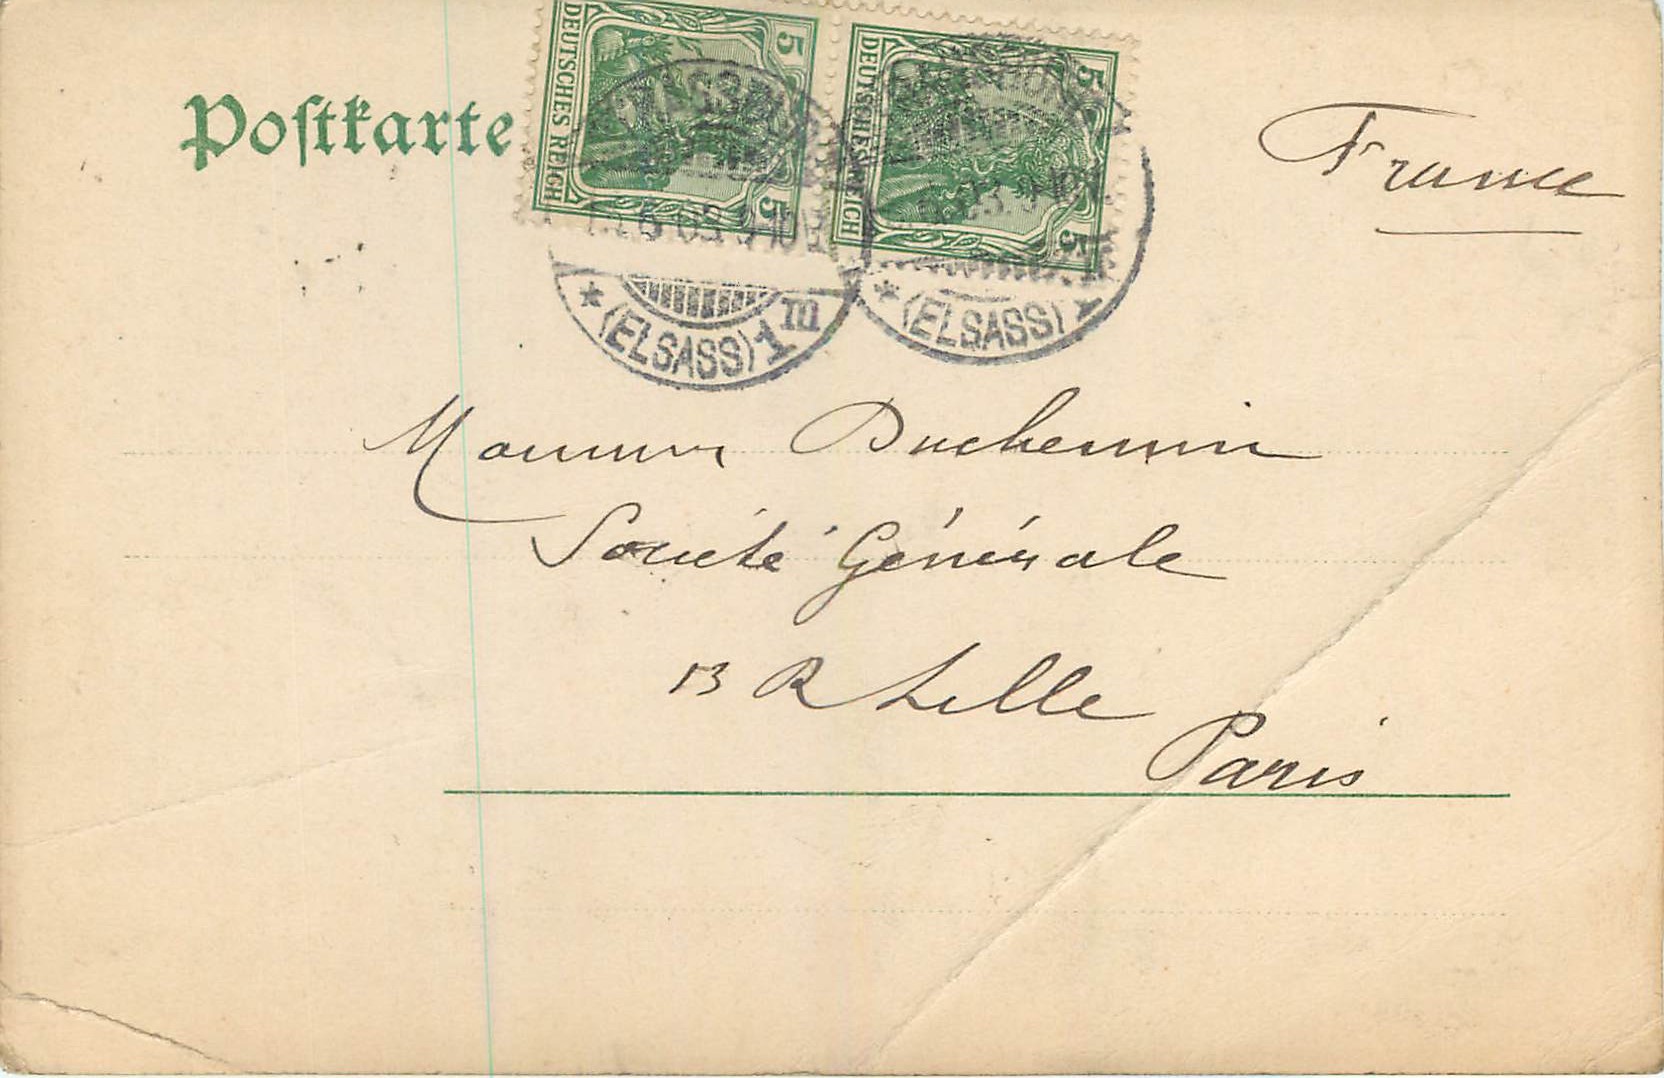 Postkarte
DEUTSCHES REICH 5 5
DEUTSCHES REICH 5 5
* (ELSASS) 1 m
* (ELSASS)
France
Monsieur Duchemin
Société Générale
13 R Lille
Paris